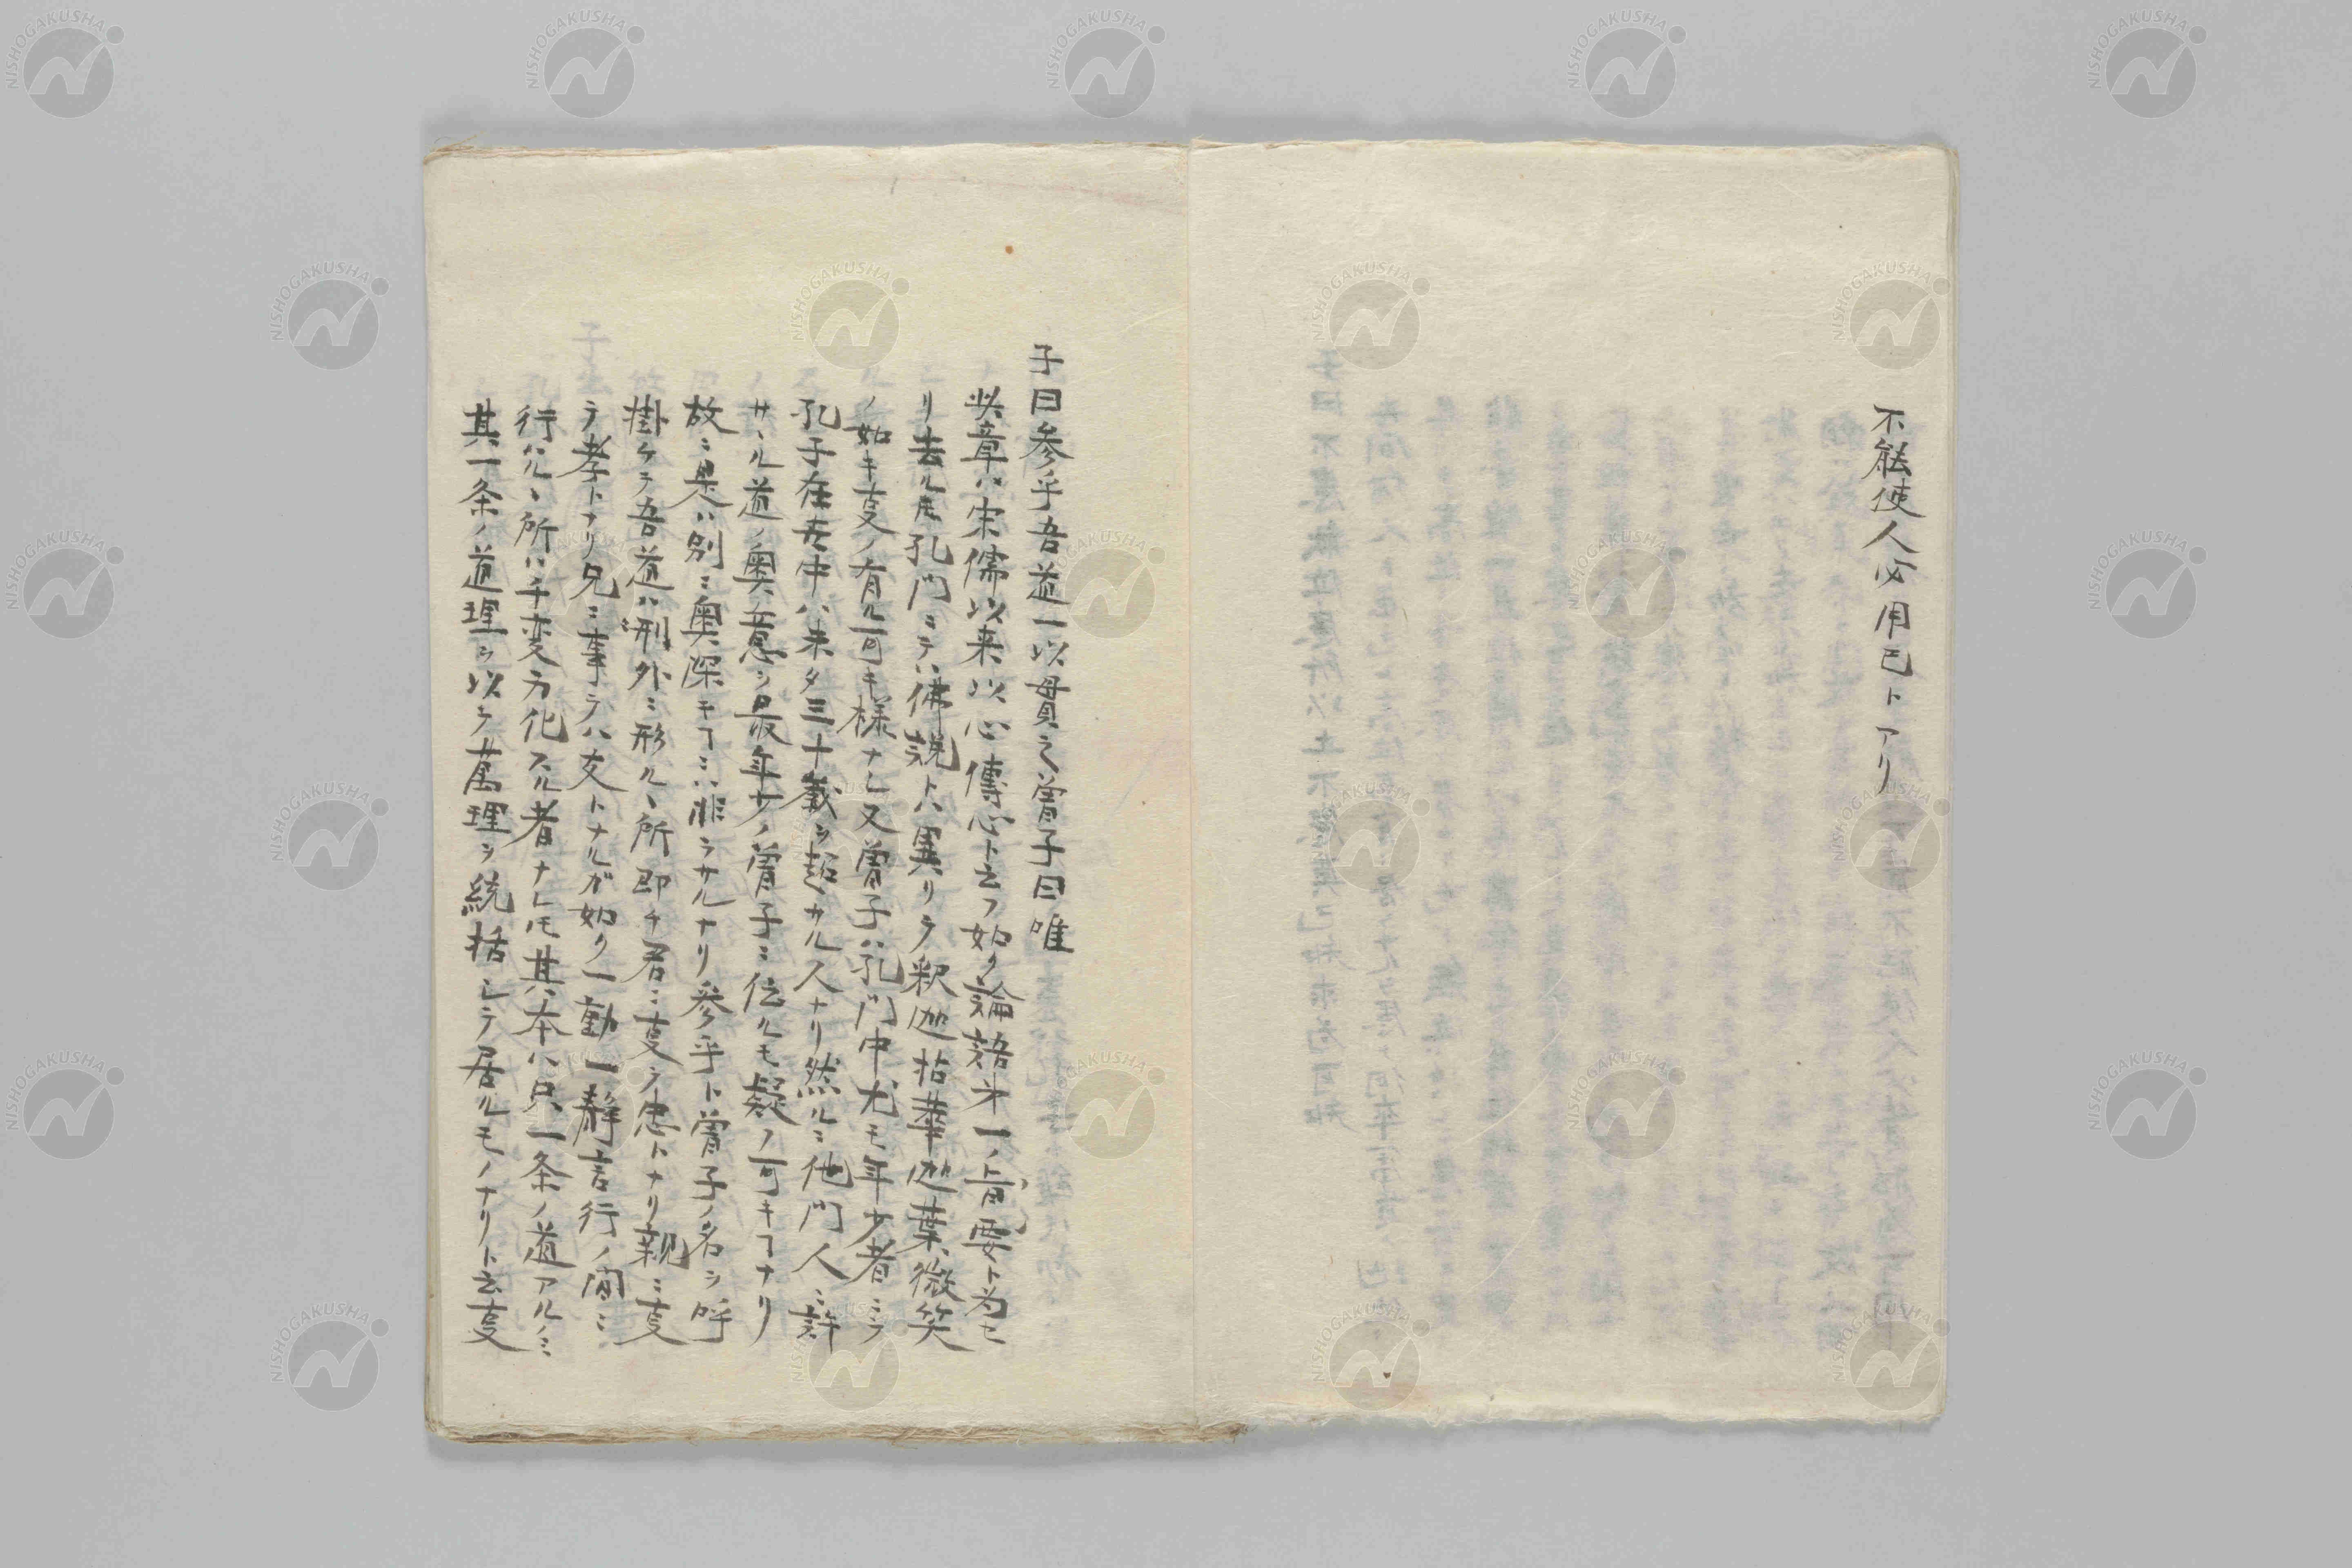 不能使人必用已トアリ
子曰参乎吾道一以貫之曽子曰唯
此章ハ宋儒以来以心傳心ト云フ如ク論語中一ノ旨要ト為セ
リ去ルモ孔門ニテハ佛説トハ異リテ釈迦拈華迦葉微笑
ノ如キ支ノ有ル可キ様ナシ又曽子ハ孔門中尤モ年少者ニテ
孔子在世中ハ未タ三十歳ヲ超サル人ナリ然ルニ他門人ニ許
サヽル道ノ奥意ヲ最年少ノ曽子ニ伝ルモ疑フ可キヿナリ
故ニ是ハ別ニ奥深キヿニハ非ラサルナリ参乎ト曽子ノ名ヲ呼
掛ケテ吾道ハ刑外ニ形ルヽ所即チ君ニ支テ忠トナリ親ニ支
テ孝トナリ兄ニ事テハ友トナルガ如ク一動一静言行ノ間ニ
行ハルヽ所ハ千変万化スル者ナレモ其本ハ只一条ノ道アルノミ
其一条ノ道理ヲ以テ萬理ヲ統括シテ居ルモノナリト云支
NISHOGAKUSHA